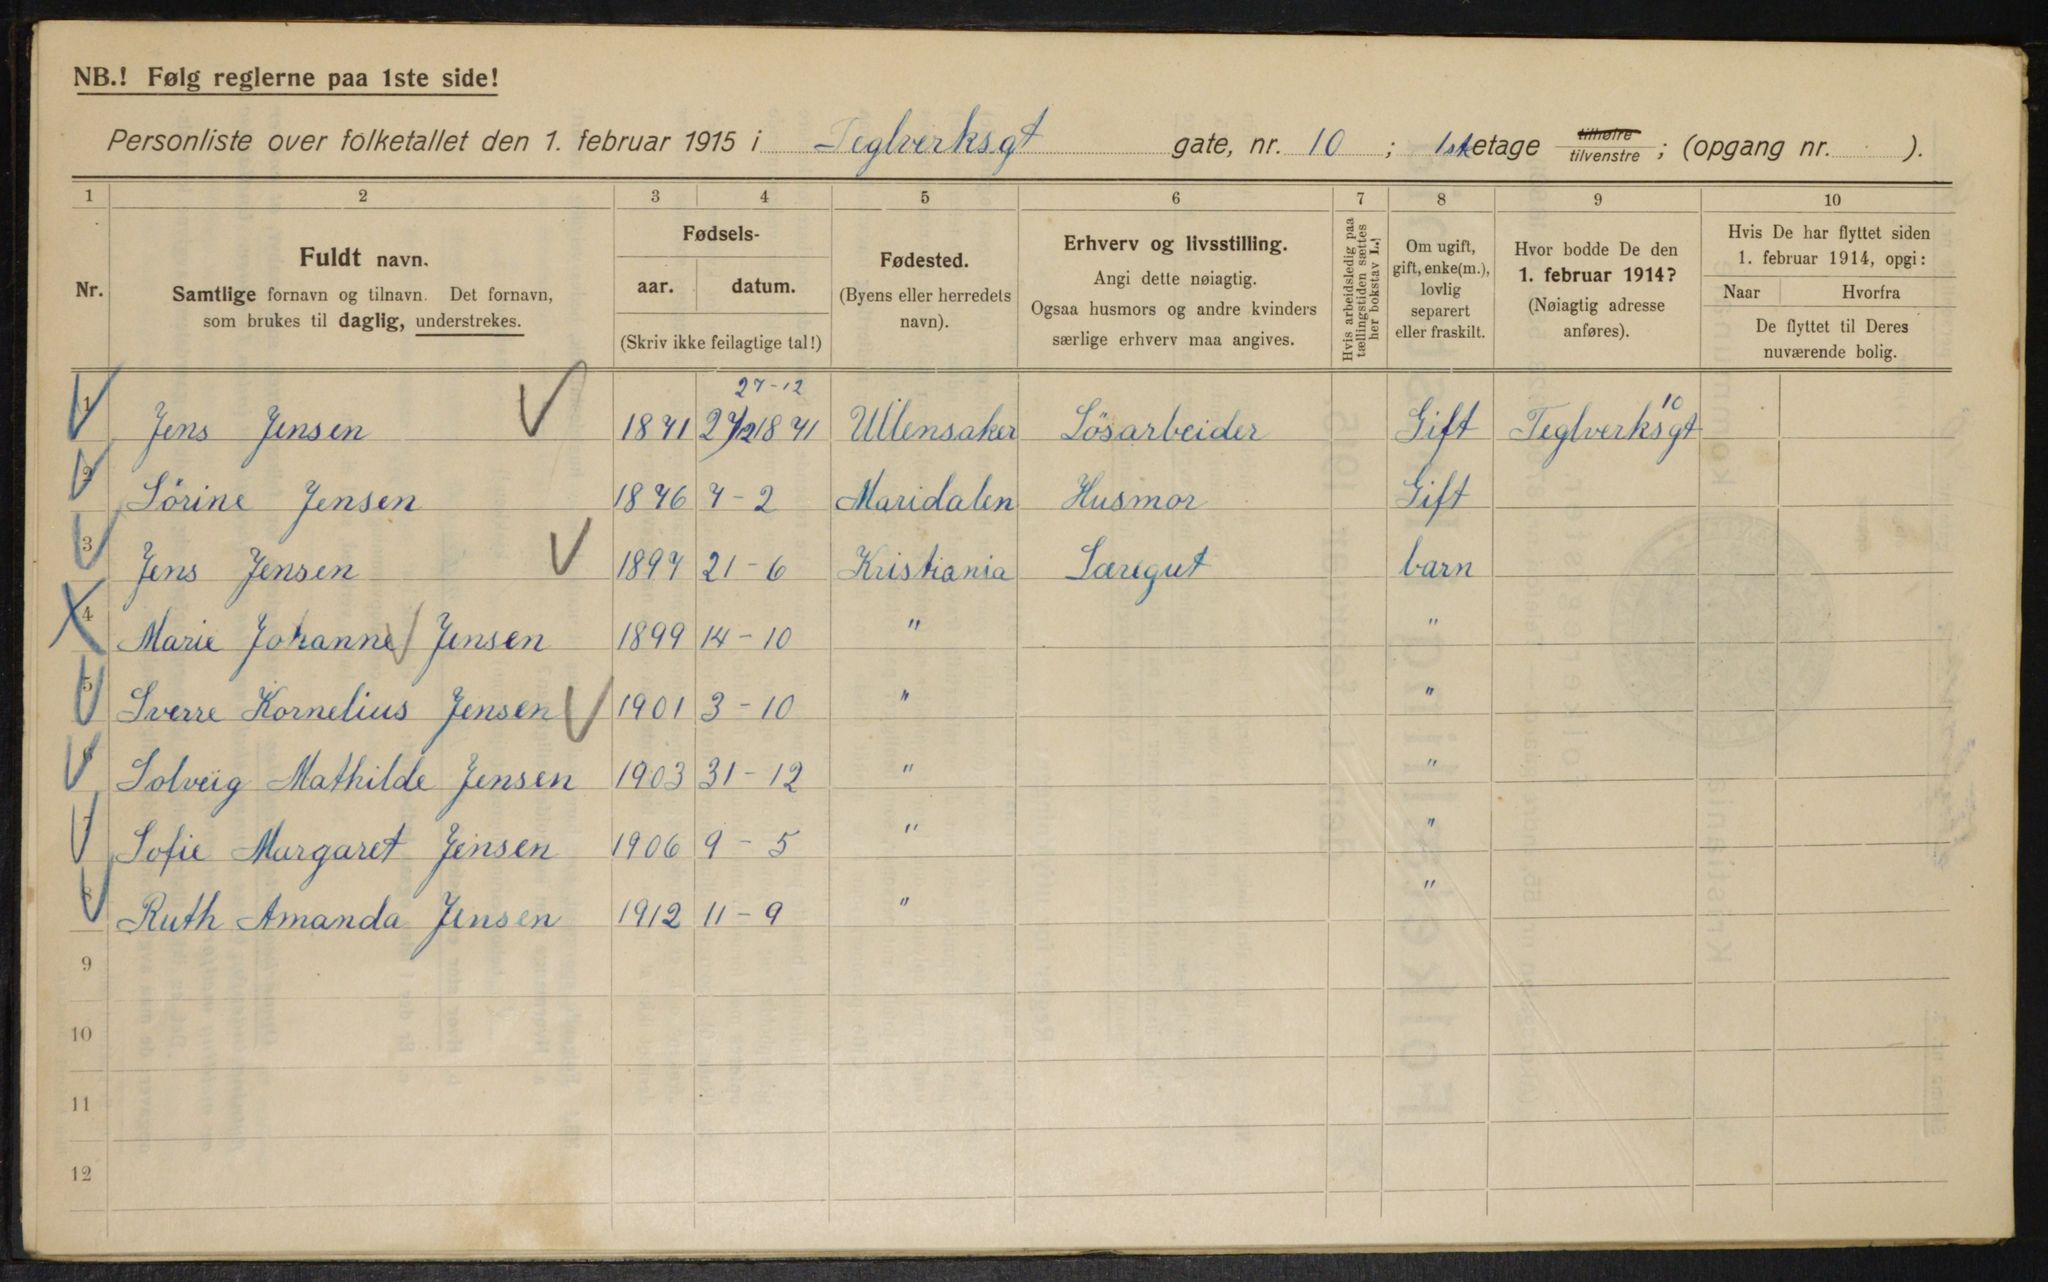 NB.! Følg reglerne paa 1ste side!
Personliste over folketallet den 1. februar 1915 i Teglverksgt gate, nr. 10 ; 1st etage tilhøire tilvenstre ; (opgang nr. ).
1 2 3 4 5 6 7 8 9 10
Nr.
Fuldt navn.
Samtlige fornavn og tilnavn. Det fornavn,
som brukes til daglig, understrekes.
Fødsels-
aar. datum.
(Skriv ikke feilagtige tal!)
Fødested.
(Byens eller herredets
navn).
Erhverv og livsstilling.
Angi dette nøiagtig.
Ogsaa husmors og andre kvinders
særlige erhverv maa angives.
Hvis arbeidsledig paa
tællingstiden sættes
her bokstav L.!
Om ugift,
gift, enke(m.),
lovlig
separert
eller fraskilt.
Hvor bodde De den
1. februar 1914?
(Nøiagtig adresse
anføres).
Hvis De har flyttet siden
1. februar 1914, opgi:
Naar Hvorfra
De flyttet til Deres
nuværende bolig.
27-12
1 Jens Jensen 1871 27/12 1871 Ullensaker Løsarbeider Gift Teglverksgt 10
2 Sörine Jensen 1876 7-2 Maridalen Husmor Gift
3 Jens Jensen 1897 21-6 Kristiania Læregut barn
4 Marie Johanne Jensen 1899 14-10 " "
5 Sverre Kornelius Jensen 1901 3-10 " "
6 Solveig Mathilde Jensen 1903 31-12 " "
7 Sofie Margaret Jensen 1906 9-5 " "
8 Ruth Amanda Jensen 1912 11-9 " "
9
10
11
12